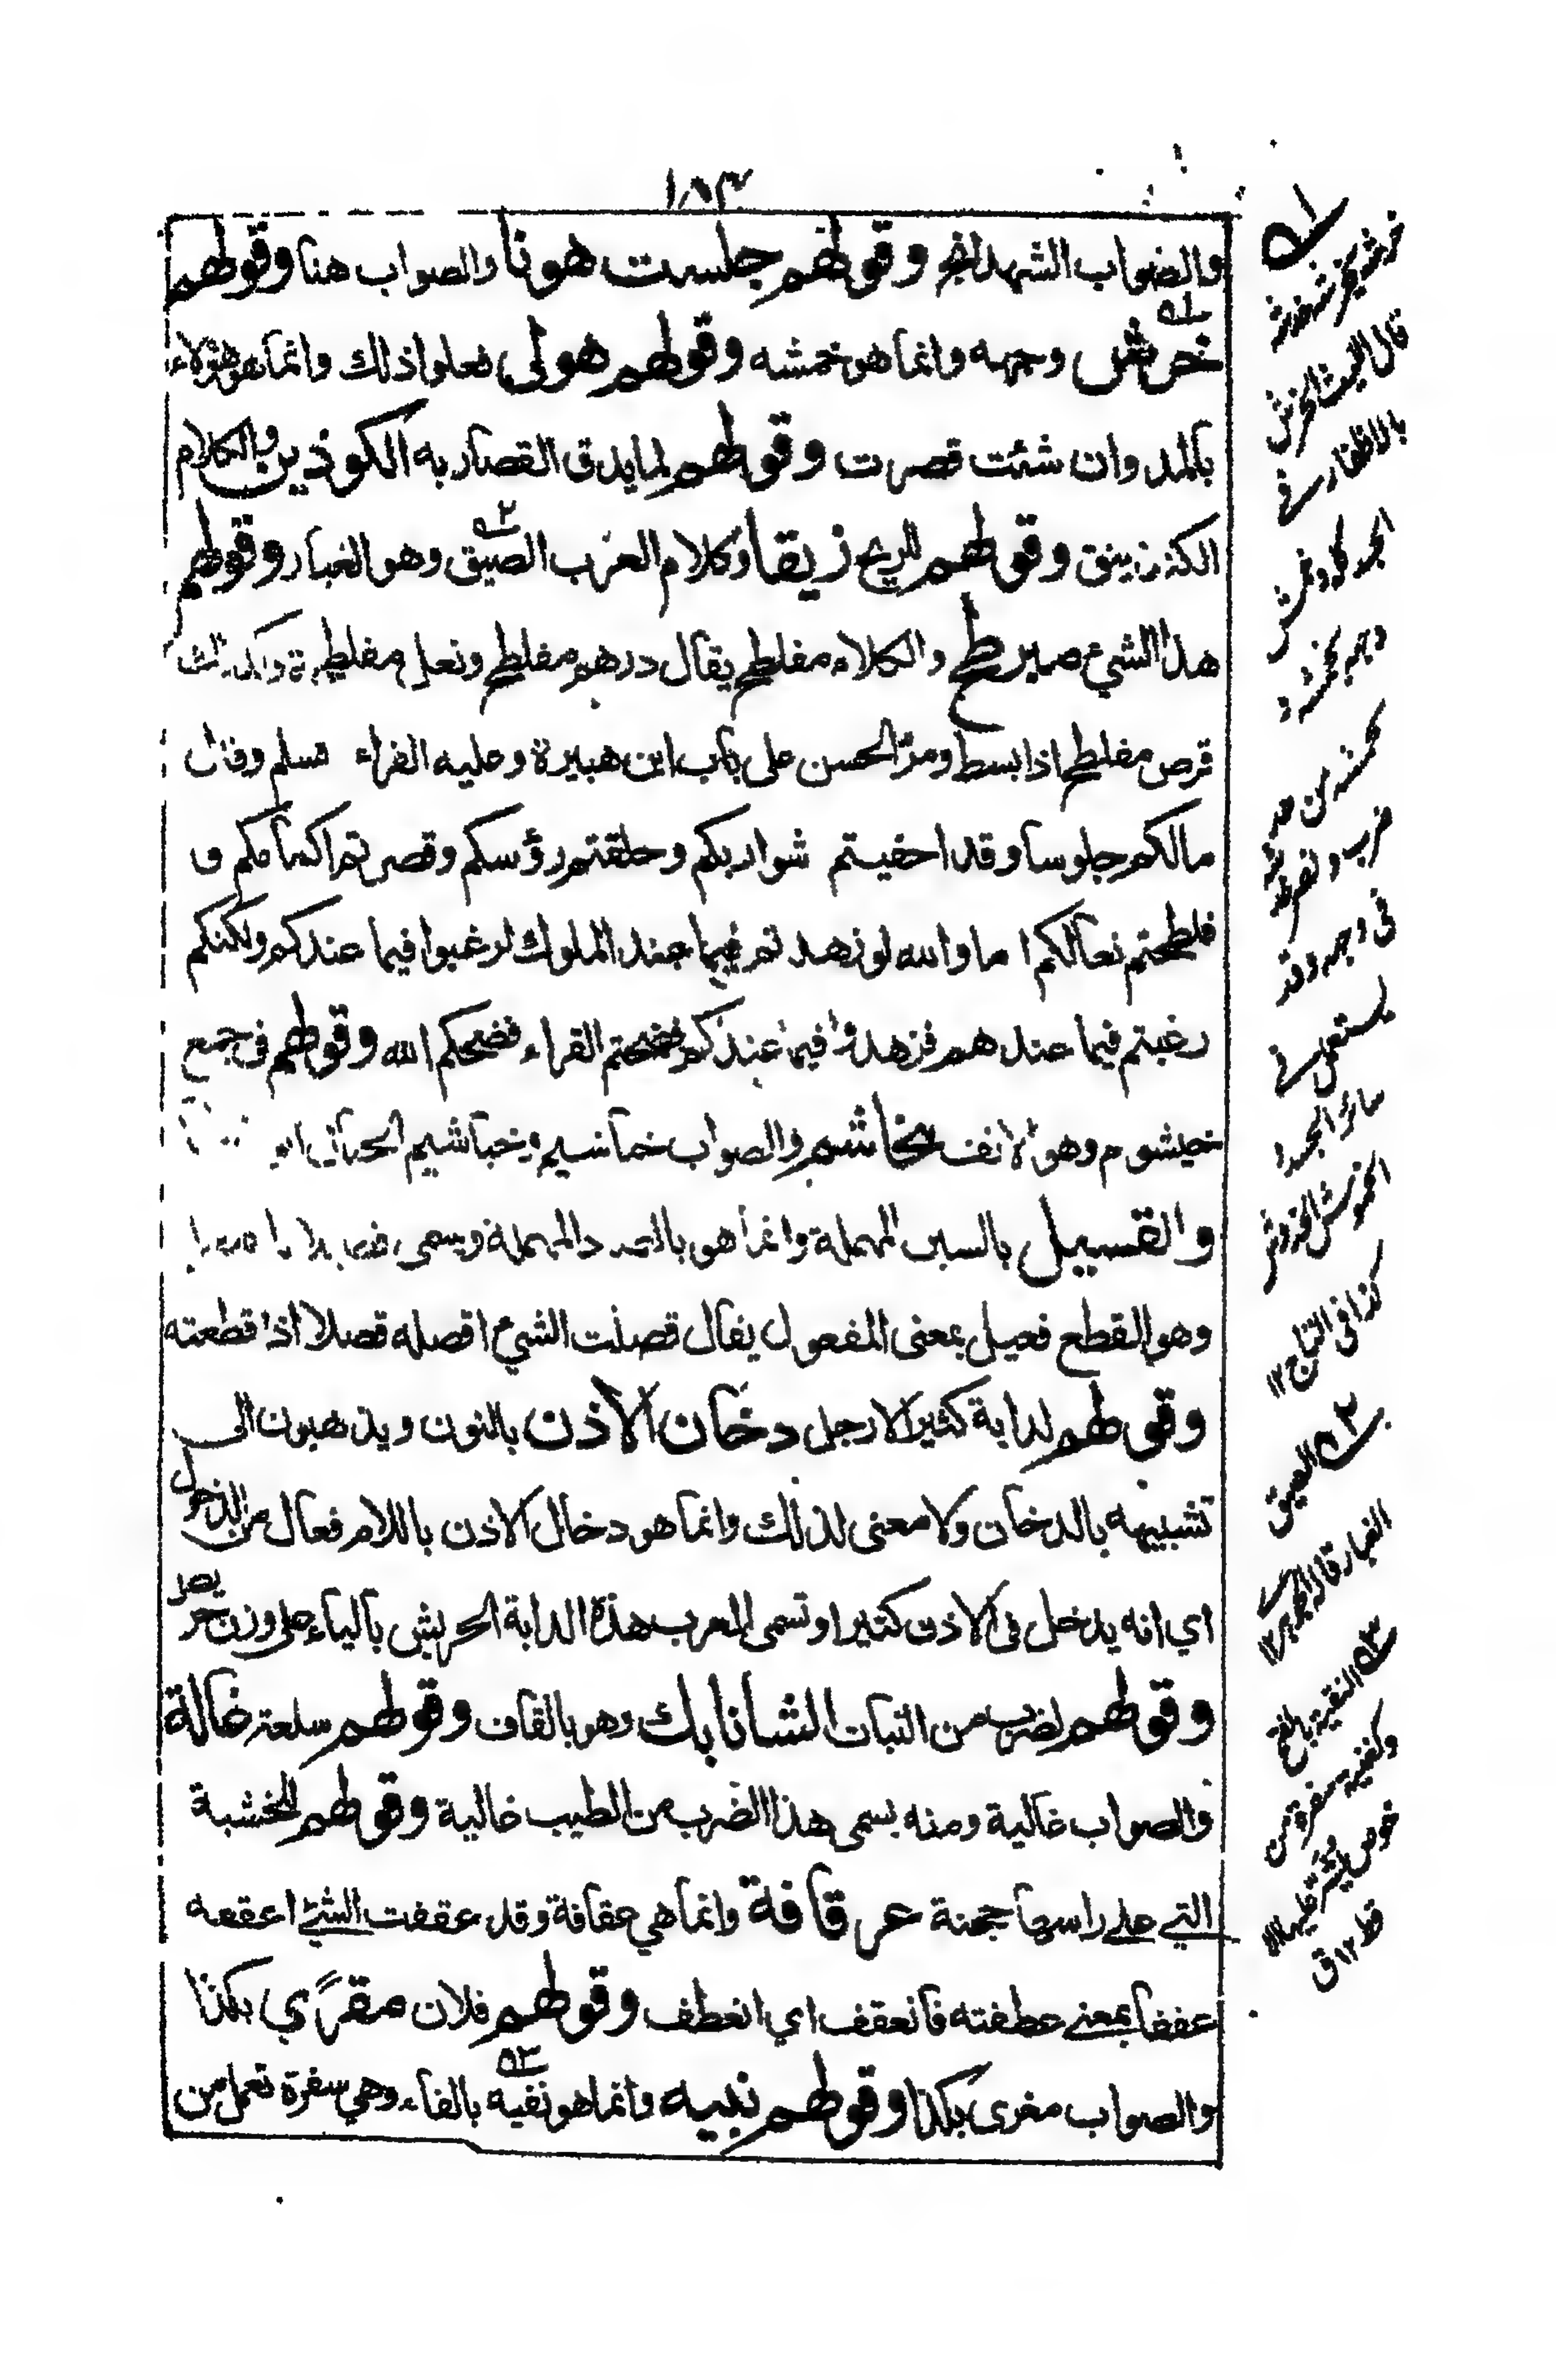 ١٨٣
والصواب الشهدانج وقولهم جلست هونا والصواب هنا وقولهم
خرمش وجهه وانما هو خمشه وقولهم هولى فعلوا ذلك وانما هو هؤلاء
بالمد وان شئت قصرت وقولهم لما يدق القصار به الكوذين والكلام
الكذينق وقولهم للريح زيقا وكلام العرب الصيق وهو الغبار وقولهم
هذا الشيء مبرطح والكلام مفلطح يقال درهم مفلطح ونعل مفلطحة وكذلك
قرص مفلطح اذا بسط ومر الحسن على باب ابن هبيرة وعليه القراء فسلم وقال
مالكم جلوسا وقد احفيتم شواربكم وحلقتم رؤسكم وقصرتم اكمامكم و
فلطحتم نعالكم اما والله لو زهدتم فيما عند الملوك لرغبوا فيما عندكم ولكنكم
رغبتم فيما عندهم فزهدوا فيما عندكم فضحتم القراء فضحكم الله وقولهم فى جمع
خيشوم وهو الانف مخاشم والصواب خياشيم وخياشيم الجبال
والقسيل بالسين المهملة وانما هو بالصاد المهملة وسمى قصيلا
وهو القطع فعيل بمعنى المفعول يقال قصلت الشيء اقصله قصلا اذا قطعته
وقولهم لدابة كثير الارجل دخان الاذن بالنون ويذهبون الى
تشبيهه بالدخان ولا معنى لذلك وانما هو دخال الاذن باللام فعال من الدخول
اي انه يدخل فى الاذن كثيرا وتسمى العرب هذة الدابة الحريش بالياء على وزن حر
يص
وقولهم لضرب من النبات الشانابك وهو بالقاف وقولهم سلعته غالة
والصواب غالية ومنه يسمى هذا الضرب من الطيب غالية وقولهم للخشبة
التي على راسها حجنة عرقافة وانما هي عقافة وقد عقفت الشئ اعقفه
عقفا بمعنى عطفته فانعقف اي انعطف وقولهم فلان مقري بكذا
والصواب مغرى بكذا وقولهم نبيه وانما هو نفيه بالفاء وهي سفرة تعمل من
قال الليث الخرش
بالاظفار فى
الجسد كله وخرش
فى وجهه وقد
يستعمل فى
سائر الجسد
كذا فى التاج ١٢
٢ الصيق
الغبار قاله الجوهرى ١٢
٣ النفية بالفتح
وكغنية سفرة من
خوص يشرر عليها الا
قط ١٢ ق